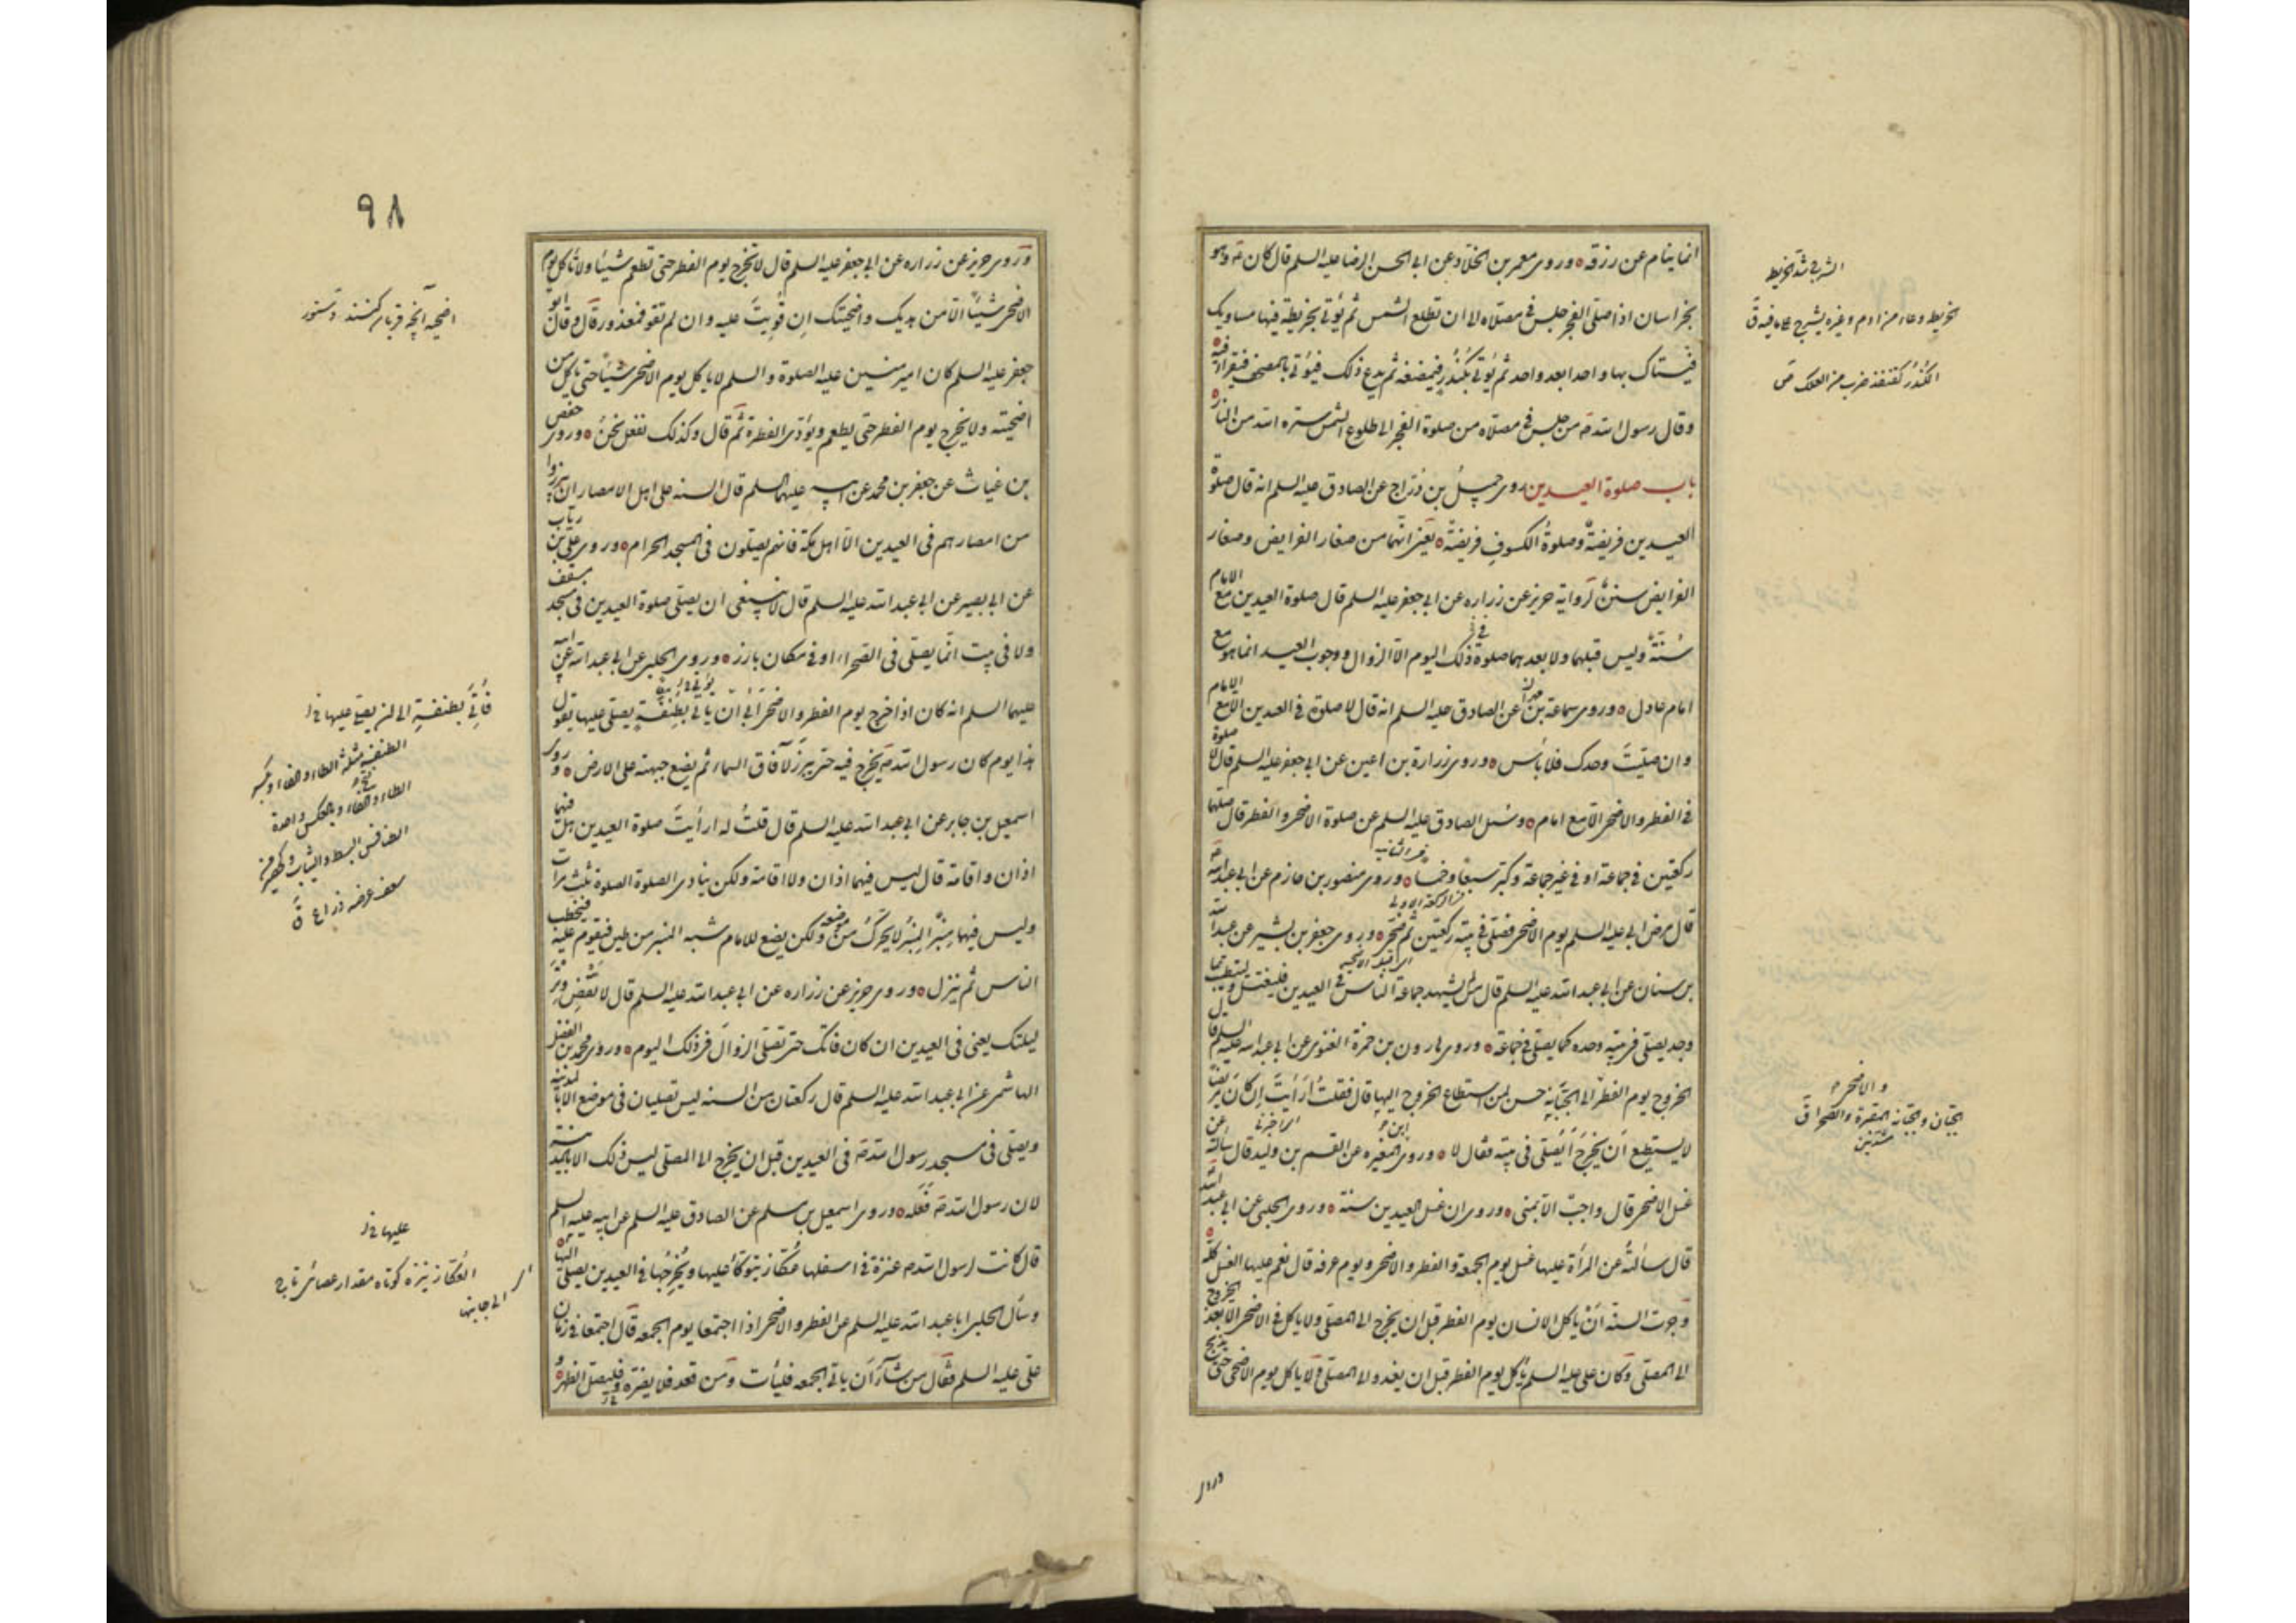 انما ينام عن رزقه وروى معمر بن الخلاد عن ابى الحسن الرضا عليه السلم قال كان وهو
بخراسان اذا صلى الفجر جلس فى مصلاه الى ان تطلع الشمس ثم يؤتى بخريطة فيها مساويك
فيستاك بها واحدا بعد واحد ثم يؤتى بكندر فيمضغه ثم يدع ذلك فيؤتى بالمصحف فيقرأ فيه
وقال رسول الله ص من جلس فى مصلاه من صلوة الفجر الى طلوع الشمس ستره الله من النار
باب صلوة العيدين روى جميل بن دراج عن الصادق عليه السلم انه قال صلوة
العيدين فريضة وصلوة الكسوف فريضة يعنى انهما من صغار الفرايض وصغار
الفرايض سنن لرواية حريز عن زراره عن ابى جعفر عليه السلم قال صلوة العيدين مع الامام
سنة وليس قبلهما ولا بعدهما صلوة ذلك اليوم الا الزوال ووجوب العيد انما هو مع
امام عادل وروى سماعة بن مهران عن الصادق عليه السلم انه قال لا صلوة فى العيدين الا مع الامام
وان صليت وحدك فلا بأس وروى زرارة بن اعين عن ابى جعفر عليه السلم قال لا صلوة
فى الفطر والاضحى الا مع امام وسئل الصادق عليه السلم عن صلوة الاضحى والفطر قال صلهما
ركعتين فى جماعة او فى غير جماعة وكبر سبعا وخمسا وروى منصور بن حازم عن ابى عبد الله
قال مرض ابى عليه السلم يوم الاضحى فصلى فى بيته ركعتين ثم ضحى وروى جعفر بن بشير عن عبد الله
بن سنان عن ابى عبد الله عليه السلم قال من لم يشهد جماعة الناس فى العيدين فليغتسل وليتطيب بما
وجد يصلى فى بيته وحده كما يصلى فى جماعة وروى هارون بن حمزة الغنوى عن ابى عبد الله عليه السلم قال
الخروج يوم الفطر الى الجبانة حسن لمن استطاع الخروج اليها قال فقلت ارأيت ان كان مريضا
لا يستطيع ان يخرج أيصلى فى بيته فقال لا وروى ابن المغيره عن القسم بن وليد قال سألته عن
غسل الاضحى قال واجب الا بمنى وروى ان غسل العيدين سنة وروى الحلبى عن ابى عبد الله
قال سألته عن المرأة عليها غسل يوم الجمعة والفطر والاضحى ويوم عرفه قال نعم عليها الغسل كله
وجرت السنة ان ياكل الانسان يوم الفطر قبل ان يخرج الى المصلى ولا ياكل فى الاضحى الا بعد الخروج
الى المصلى وكان على عليه السلم يأكل يوم الفطر قبل ان يغدو الى المصلى ولا ياكل يوم الاضحى حتى يذبح
خريطه وعاء من ادم وغيره يشرج على ما فيه ق
الكندر كقنفذ ضرب من العلك ص
والاضحى
الجبان والجبانة المقبرة والصحرا ق
٩٨
وروى حريز عن زراره عن ابى جعفر عليه السلم قال لا تخرج يوم الفطر حتى تطعم شيئا ولا تأكل يوم
الاضحى شيئا الا من هديك واضحيتك ان قويت عليه وان لم تقو فمعذور قال وقال ابو
جعفر عليه السلم كان امير منين عليه الصلوة والسلم لا ياكل يوم الاضحى شيئا حتى ياكل من
اضحيته ولا يخرج يوم الفطر حتى يطعم ويؤدى الفطرة ثم قال وكذلك نفعل نحن وروى حفص
بن غياث عن جعفر بن محمد عن ابيه عليهما السلم قال السنه على اهل الامصار ان يبرزوا
من امصارهم فى العيدين الا اهل مكة فانهم يصلون فى المسجد الحرام وروى على بن رياب
عن ابى بصير عن ابى عبد الله عليه السلم قال لا ينبغى ان يصلى صلوة العيدين فى مسجد مسقف
ولا فى بيت انما يصلى فى الصحراء او فى مكان بارز وروى الحلبى عن ابى عبد الله عن ابيه
عليهما السلم انه كان اذا خرج يوم الفطر والاضحى ابى ان ياتى بطنفسة يصلى عليها يقول
هذا يوم كان رسول الله ص يخرج فيه حتى يبرز لآفاق السماء ثم يضع جبهته على الارض وروى
اسمعيل بن جابر عن ابى عبد الله عليه السلم قال قلت له ارأيت صلوة العيدين هل فيهما
اذان واقامة قال ليس فيهما اذان ولا اقامة ولكن ينادى الصلوة الصلوة ثلث مرات
وليس فيهما منبر المنبر لا يحرك من موضعه ولكن يضع للامام شبه المنبر من طين فيقوم عليه فيخطب
الناس ثم ينزل وروى حريز عن زراره عن ابى عبد الله عليه السلم قال لا تقض وتر
ليلتك يعنى فى العيدين ان كان فاتك حتى تصلى الزوال فى ذلك اليوم وروى محمد بن الفضل
الهاشمى عن ابى عبد الله عليه السلم قال ركعتان من السنه ليس تصليان فى موضع الا بالمدينة
ويصلى فى مسجد رسول الله ص فى العيدين قبل ان يخرج الى المصلى ليس ذلك الا بالمدينة
لان رسول الله ص فعله وروى اسمعيل بن مسلم عن الصادق عليه السلم عن ابيه عليه السلم
قال كانت لرسول الله ص عنزة فى اسفلها عكاز يتوكأ عليها ويخرجها فى العيدين يصلى اليها
وسأل الحلبى ابا عبد الله عليه السلم عن الفطر والاضحى اذا اجتمعا يوم الجمعه قال اجتمعا فى زمان
على عليه السلم فقال من شآء ان ياتى الجمعه فليأت ومن قعد فلا يضره وليصل الظهر
اضحيه آنچه قربان كنند
الطنفسة مثلثة الطاء والفاء وبكسر
الطاء وفتح الفاء وبالعكس واحدة
الطنافس للبسط والثياب وكحصير من
سعف عرضه ذراع ق
عليها
العكاز نيزه كوتاه مقدار عصائى
الى جانبها